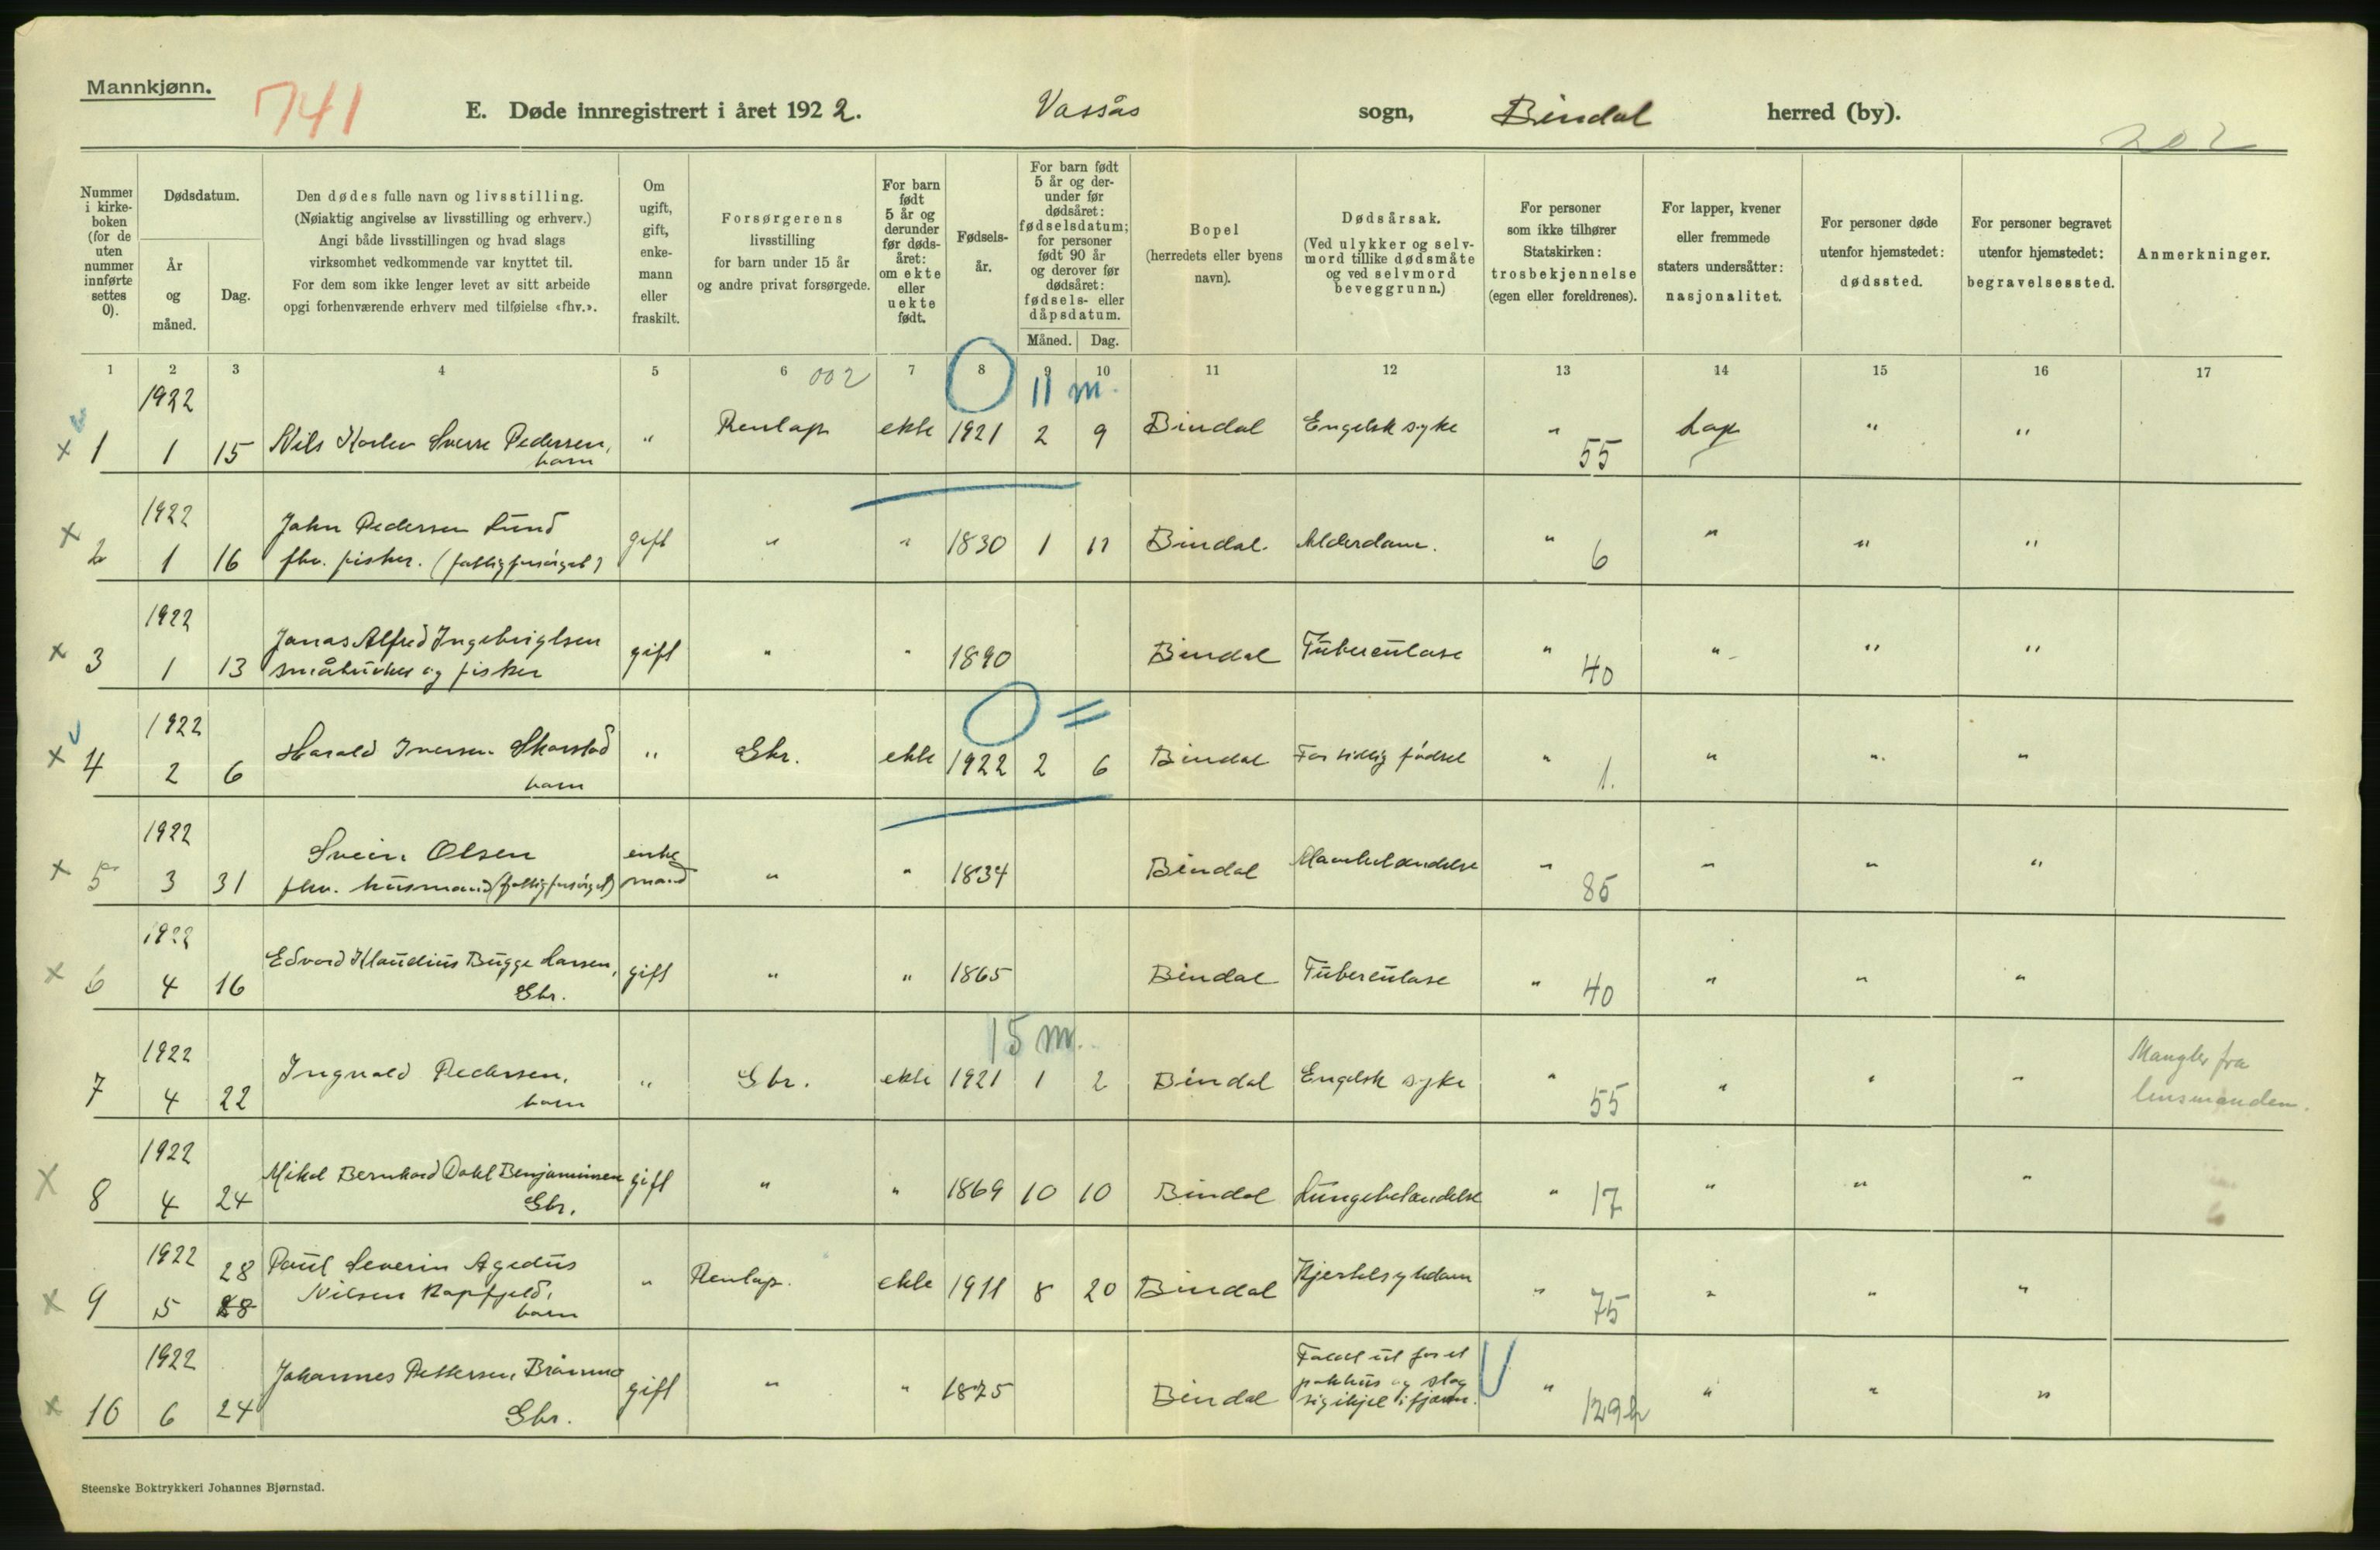 Mannkjønn.
741
E. Døde innregistrert i året 1922.
Vassås sogn, Bindal herred (by).
202
Nummer i kirke-boken (for de uten nummer innførte settes 0).
Dødsdatum.
År og måned.
Dag.
Den dødes fulle navn og livsstilling.
(Nøiaktig angivelse av livsstilling og erhverv.)
Angi både livsstillingen og hvad slags
virksomhet vedkommende var knyttet til.
For dem som ikke lenger levet av sitt arbeide
opgi forhenværende erhverv med tilføielse «fhv.».
Om ugift, gift, enke-mann eller fraskilt.
Forsørgerens
livsstilling
for barn under 15 år
og andre privat forsørgede.
For barn født 5 år og derunder før døds-året: om ekte eller uekte født.
Fødsels-år.
For barn født 5 år og der-under før dødsåret: fødselsdatum; for personer født 90 år og derover før dødsåret: fødsels- eller dåpsdatum.
Måned.
Dag.
Bopel
(herredets eller byens
navn).
Dødsårsak.
(Ved ulykker og selv-mord tillike dødsmåte og ved selvmord beveggrunn.)
For personer
som ikke tilhører
Statskirken:
trosbekjennelse
(egen eller foreldrenes).
For lapper, kvener
eller fremmede
staters undersåtter:
nasjonalitet.
For personer døde
utenfor hjemstedet:
dødssted.
For personer begravet
utenfor hjemstedet:
begravelsessted.
Anmerkninger.
1 2 3 4 5 6 002 7 8 9 10 11 12 13 14 15 16 17
11 m.
1922
x 1 1 15 Nils Sverre Pedersen, " Renlap ekte 1921 2 9 Bindal Engelsk syke " 55 Lap " "
barn
1922
x 2 1 16 Jahn Pedersen Lund gift " " 1830 1 11 Bindal. Alderdom. " 6 " " "
fhv. fisker. (fattigforsørget)
1922
x 3 1 13 Jonas Alfred Ingebrigtsen gift " " 1890 Bindal Tuberculose " 40 " " "
småbruker og fisker
1922
x 4 2 6 Harald Iversen Skarstad " Gbr. ekte 1922 2 6 Bindal For tidlig fødsel " 1. " " "
barn
1922
x 5 3 31 Svein Olsen enkemand " " 1834 Bindal Mavebetændelse " 85 " " "
fhv. husmand (fattigforsørget)
1922
x 6 4 16 Edvard Klaudius Bugge Larsen, gift " " 1865 Bindal Tuberculose " 40 " " "
Gbr.
15 m.
1922
7 4 22 Ingvald Pedersen, " Gbr. ekte 1921 1 2 Bindal Engelsk syke " 55 " " " Mangler fra
barn lensmanden.
1922
x 8 4 24 Mikal Bernhard Dahl Benjaminsen gift " " 1869 10 10 Bindal Lungebetændelse " 17 " " "
Gbr.
1922 28
x 9 5 Paul Severin Agedus " Renlap. ekte 1911 8 20 Bindal Hjertesykdom " 75 " " "
Nilsen Kapfjeld,
barn
1922
x 10 6 24 Johannes Pettersen gift " " 1875 Bindal Faldt ut for et " 129 " " "
Gbr. pakhus og slog
sig ihjel i fjæren.
Steenske Boktrykkeri Johannes Bjørnstad.